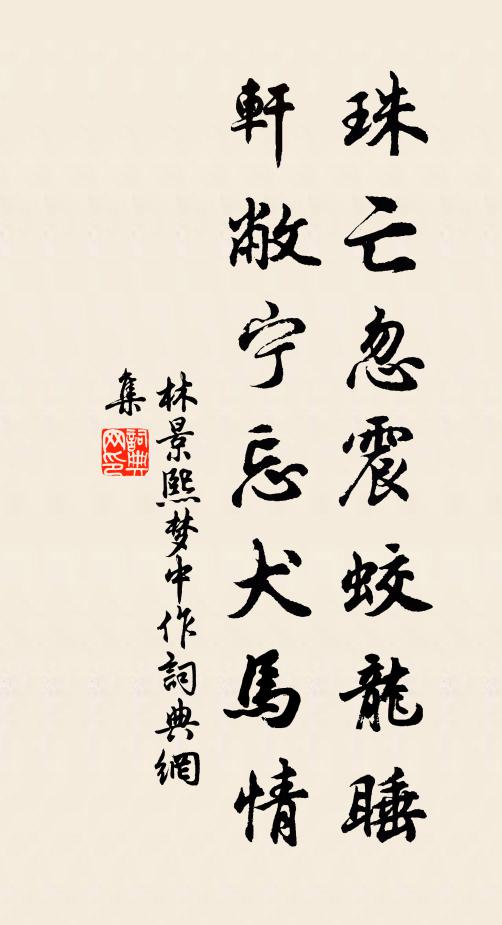 珠亡忽震蛟龍睡
軒敞宁忘犬馬情
林景熙梦中作詞典網
集
詞典
网印